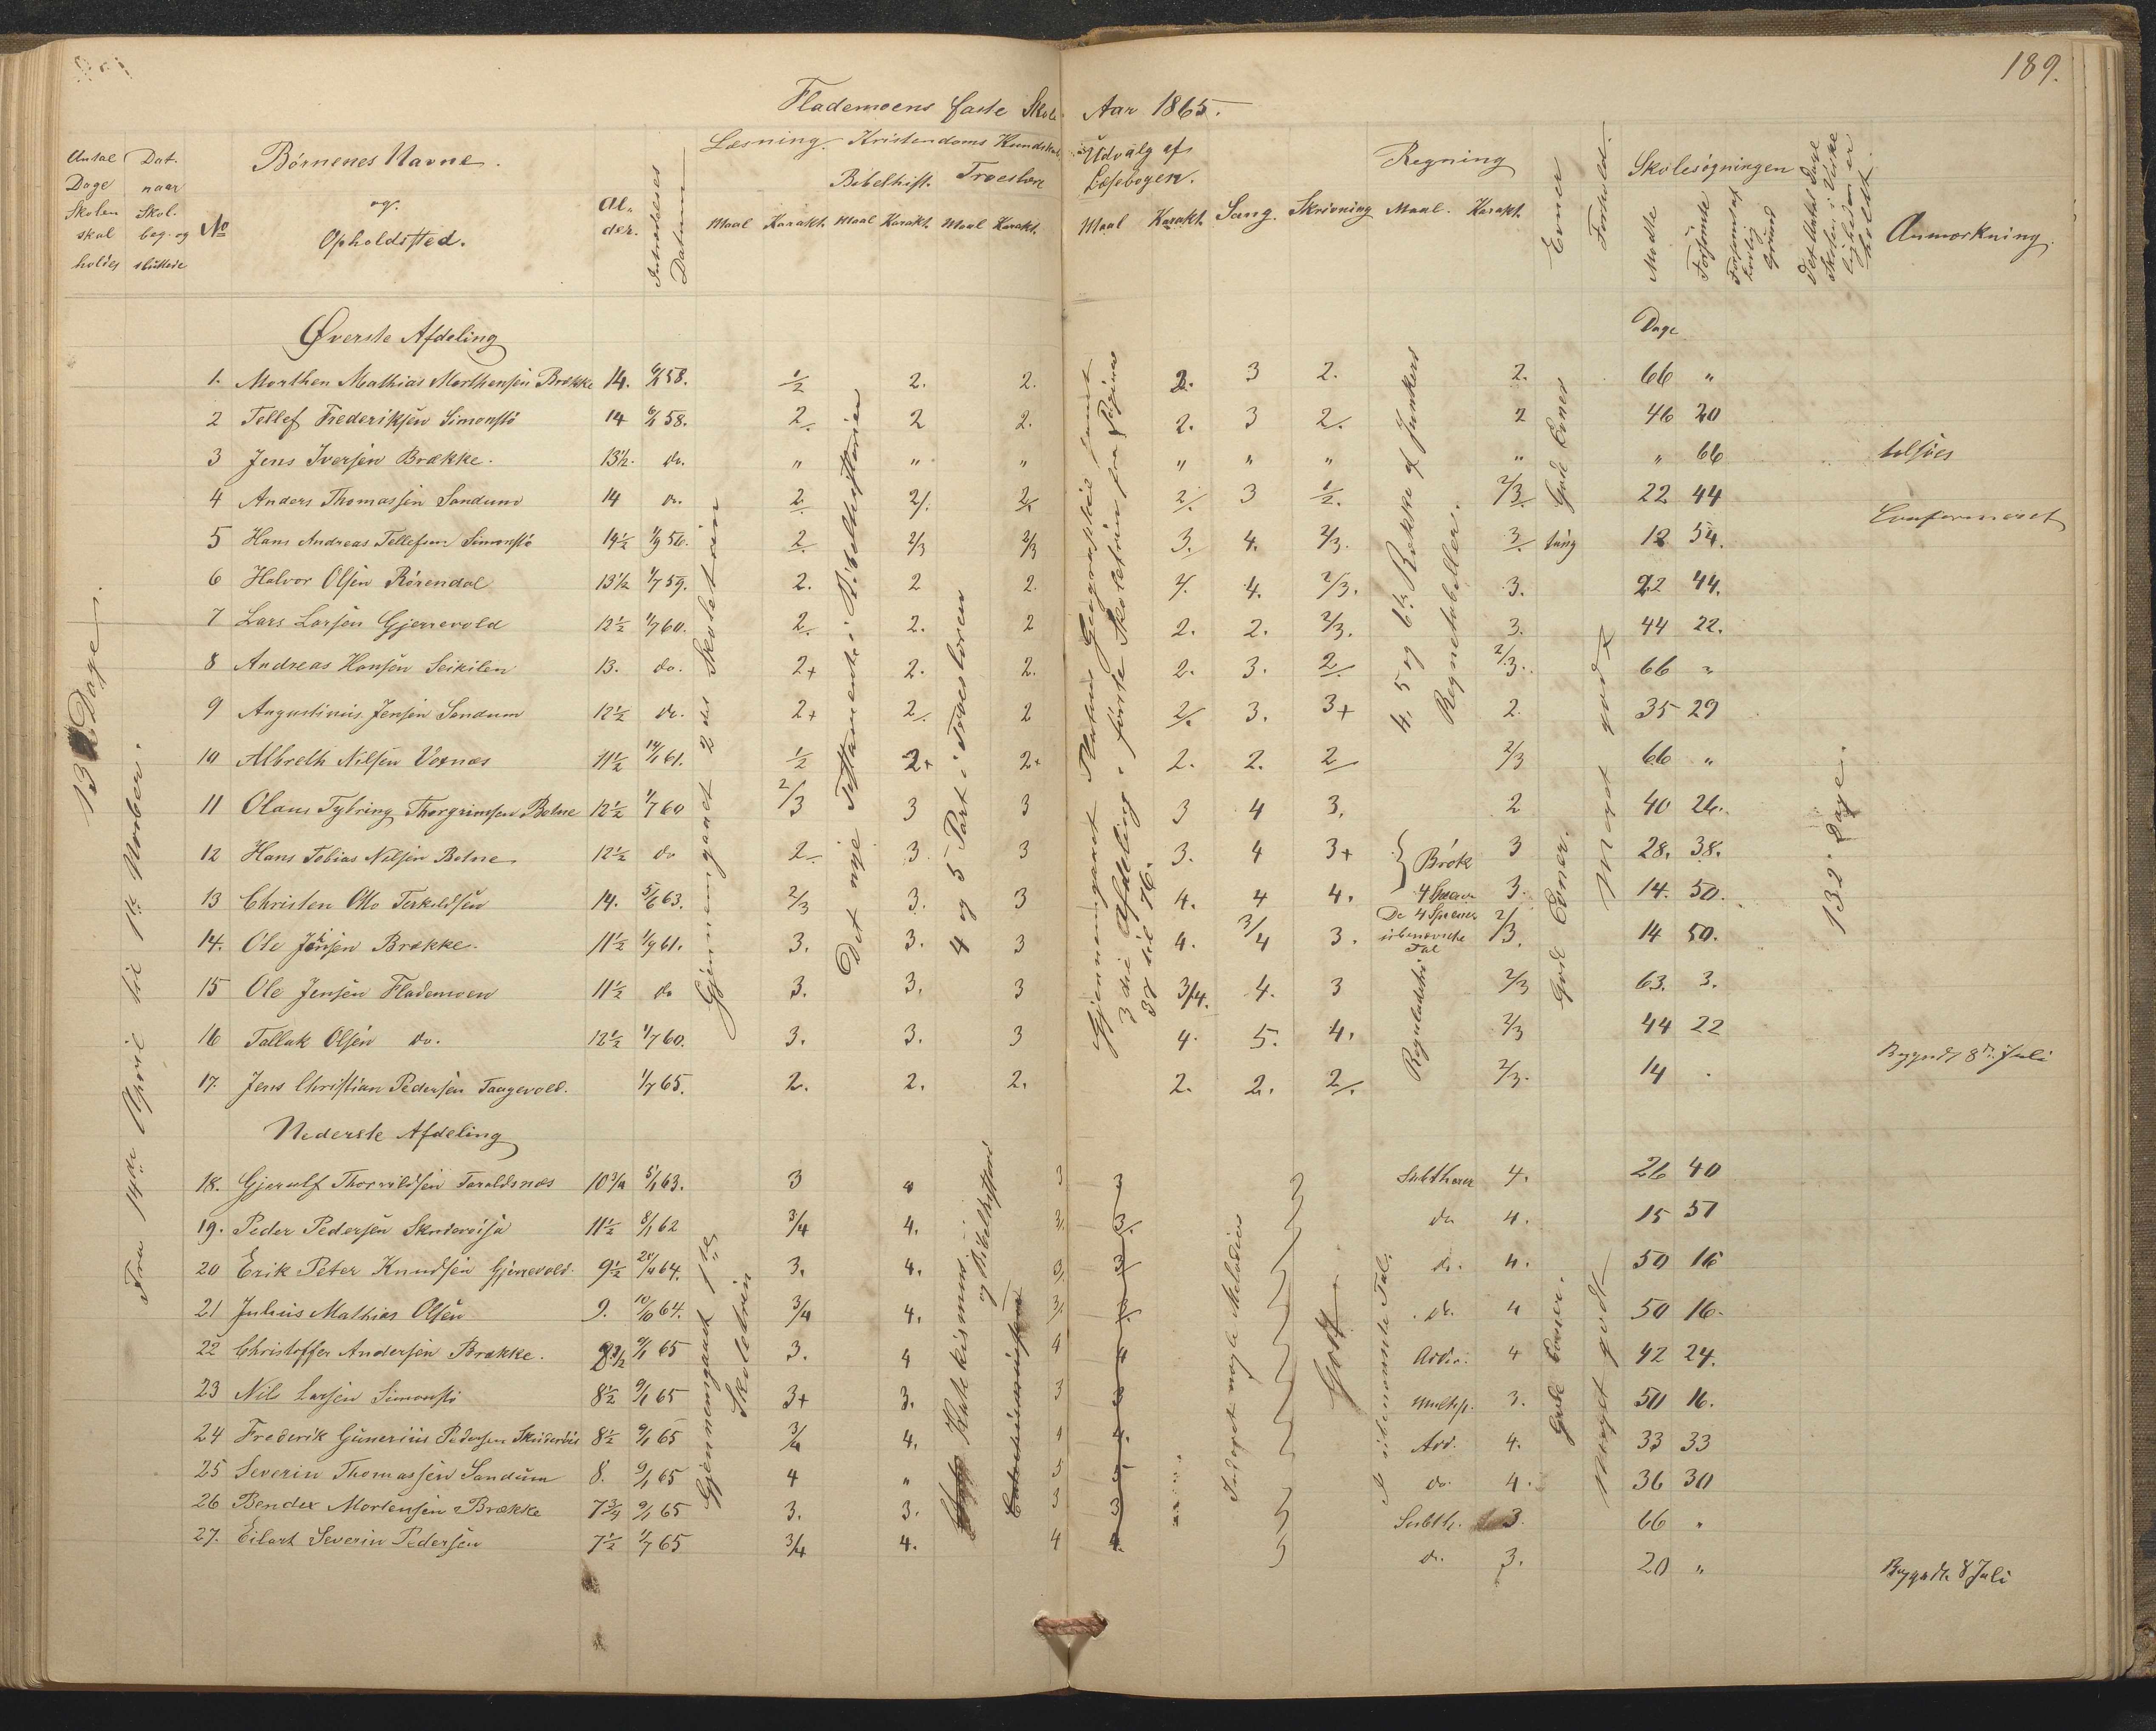 189.
Flademoens faste Skole Aar 1865.
Antal Dage Skolen skal holdes
Dat. naar Skol. beg. og sluttede
No
Børnenes Navne og Opholdsted.
Alder.
Indtrædelses Datum
Læsning. Maal Karakt.
Kristendoms Kundskab
Bibelhist. Maal Karakt.
Troeslære Maal Karakt.
Udvalg af Læsebogen. Maal Karakt.
Sang. Skrivning
Regning Maal. Karakt.
Evner
Forhold.
Skolesøgningen
Mødte Forsømte
Anmærkning.
132 Dage.
Fra 19de April til 1te November.
Øverste Afdeling Dage
1. Morthen Mathias Morthensen Brække 14. 9/1 58. 1/2 2. 2. 2. 3 2. 2. 66 "
2 Tellef Frederiksen Simonstö 14 9/1 58. 2 2 2. 2. 3 2. 2 46 20
3 Jens Iversen Brække. 13½. do. " " " " " " " " 66
4 Anders Thomassen Sandum 14 do. 2 2 2 2 3 1/2. 2/3 22 44
5 Hans Andreas Tellefsen Simonstö 14½ 1/9 56. 2 2/3 2/3 3. 4. 2/3. 3 12 54.
6 Halvor Olsen Rörendal 13½ 1/7 59. 2. 2 2. 2. 4. 2/3. 3. 22 44.
7 Lars Larsen Gjerrevold 12½ 1/7 60. 2. 2. 2 2. 2. 2/3. 3. 44 22.
8 Andreas Hansen Seikilen 13. do. 2+ 2. 2. 2. 3. 2 2/3. 66 "
9 Augustinus Jensen Sandum 12½ do. 2+ 2. 2 2. 3. 3+ 2. 35 29
10 Albreth Nilsen Voxnæs 11½ 14/1 61. 1/2 2+ 2+ 2. 2. 2 2/3 66 "
11 Olaus Tybring Thorgrimsen Botne 12½ 1/7 60 2/3 3 3 3 4 3. 2 40 26.
12 Hans Tobias Nilsen Botne 12½ do 2. 3. 3 3. 4 3+ Brök 3 28. 38.
13 Christen Otto Terkildsen 14. 5/6 63. 2/3 3. 3 4. 4 4. 3. 14. 50.
14. Ole Jensen Brække. 11½ 1/9 61. 3. 3. 3 4. 3/4 3. 2/3. 14 50.
15 Ole Jensen Flademoen 11½ do 3. 3. 3 3/4. 4. 3 2/3 63. 3.
16 Tallak Olsen do. 12½ 1/7 60. 3. 3. 3 4. 5. 4. 2/3 44 22
17. Jens Christian Pedersen Taagevold. 1/7 65. 2. 2. 2. 2. 2. 2. 2/3. 14 .
Gjennemgaaet 2det Skoletrin
Det nye Testamente i Bibelhistorien
4 og 5 Part i Troeslæren
3die Afdeling i förste Skoletrin fra Pagina 37 til 76.
4. 5 og 6te Række af Junkers Regnetabeller.
De 4 Species ubenævnte Tal
Reguladetri
Gode Evner
tung
Gode Evner.
Meget godt
132 Dage.
Begyndt 8de Juli
Nederste Afdeling
18. Gjerulf Thorvildsen Teraldsnæs 10¾ 5/1 63. 3 4 3 3 Subthera 4. 26 40
19. Peder Pedersen 11½ 8/1 62 3/4 4. 3. 3. do 4. 15 51
20 Erik Peter Knudsen Gjerrevold. 9½ 25/4 64. 3. 4. 3. 3 do. 4. 50 16
21 Julius Mathias Olsen 9. 10/10 64. 3/4 4. 3. 3. do. 4 50 16.
22 Christoffer Andersen Brække. 8½ 9/1 65 3. 4 4 4 Addi. 4 42 24.
23 Nils Larsen Simonstö 8½ 9/1 65 3+ 3. 3 3 Multip. 3. 50 16.
24 Frederik Gunerius Pedersen 8½ 9/1 65 3/4 4. 4 4. Add. 4. 33 33
25 Severin Thomassen Sandum 8. 9/1 65 4 " 5 5 do. 4. 36 30
26 Bendix Mortensen Brække 7¾ 9/1 65 3. 3. 3 3 Subth. 3. 66 "
27. Eilert Severin Pedersen 7½ 1/7 65 3/4 4. 4 4. do. 3. 20 "
Gjennemgaaet 1te Skoletrin
Katekismus og Bibelhistorie
Indöget nogle Melodier
Godt
4 ubenævnte Tal.
Gode Evner.
Meget godt
Begyndte 8 Juli